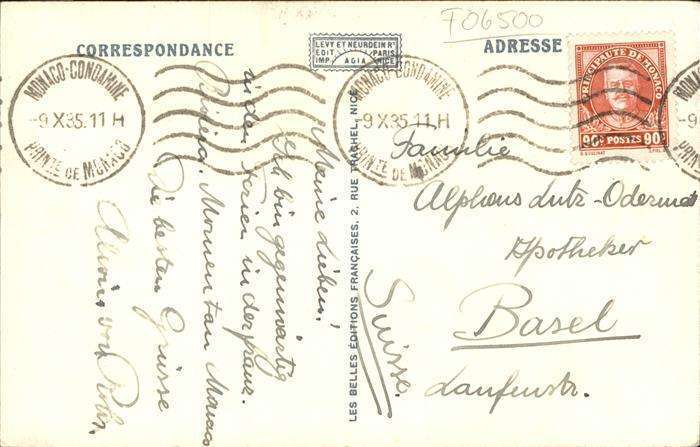 F06500
CORRESPONDANCE
LEVY ET NEURDEIN Rs
EDIT. PARIS
IMP. AGIA NICE
ADRESSE
PRINCIPAUTÉ DE MONACO
90c POSTES 90c
MONACO-CONDAMINE
-9 X 35. 11 H
PRINTÉ DE MONACO
MONACO-CONDAMINE
-9 X 35. 11 H
PRINTÉ DE MONACO
-9
Meine Lieben!
Ich bin gegenwärtig
in den Ferien in der franz.
Riviera. Momentan Monaco
Die besten Grüsse
Alwin von
LES BELLES ÉDITIONS FRANÇAISES, 2, RUE TRACHEL, NICE
Familie
Alphons Lutz-Odermat
Apotheker
Basel
Laufenstr.
Suisse.